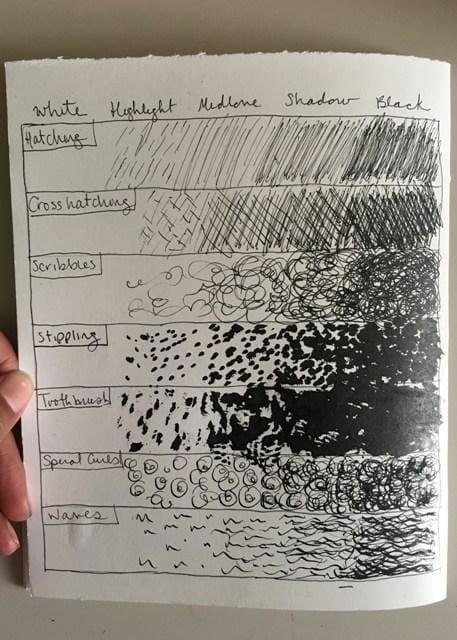 White Highlight Midtone Shadow Black
Hatching
Cross hatching
Scribbles
Stippling
Toothbrush
Spiral Curls
Waves